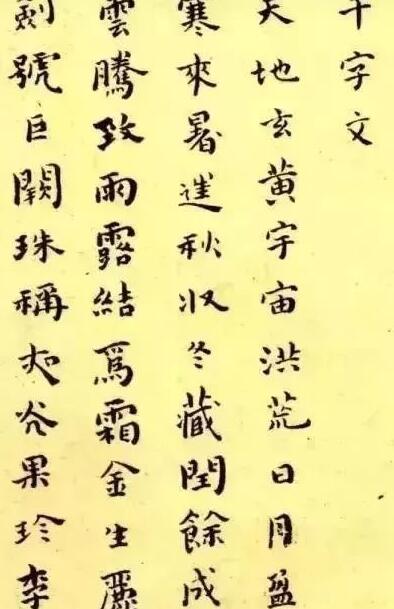 千字文
天地玄黄宇宙洪荒日月盈
寒來暑往秋收冬藏閏餘成
雲騰致雨露結爲霜金生麗
劍號巨闕珠稱夜光果珍李